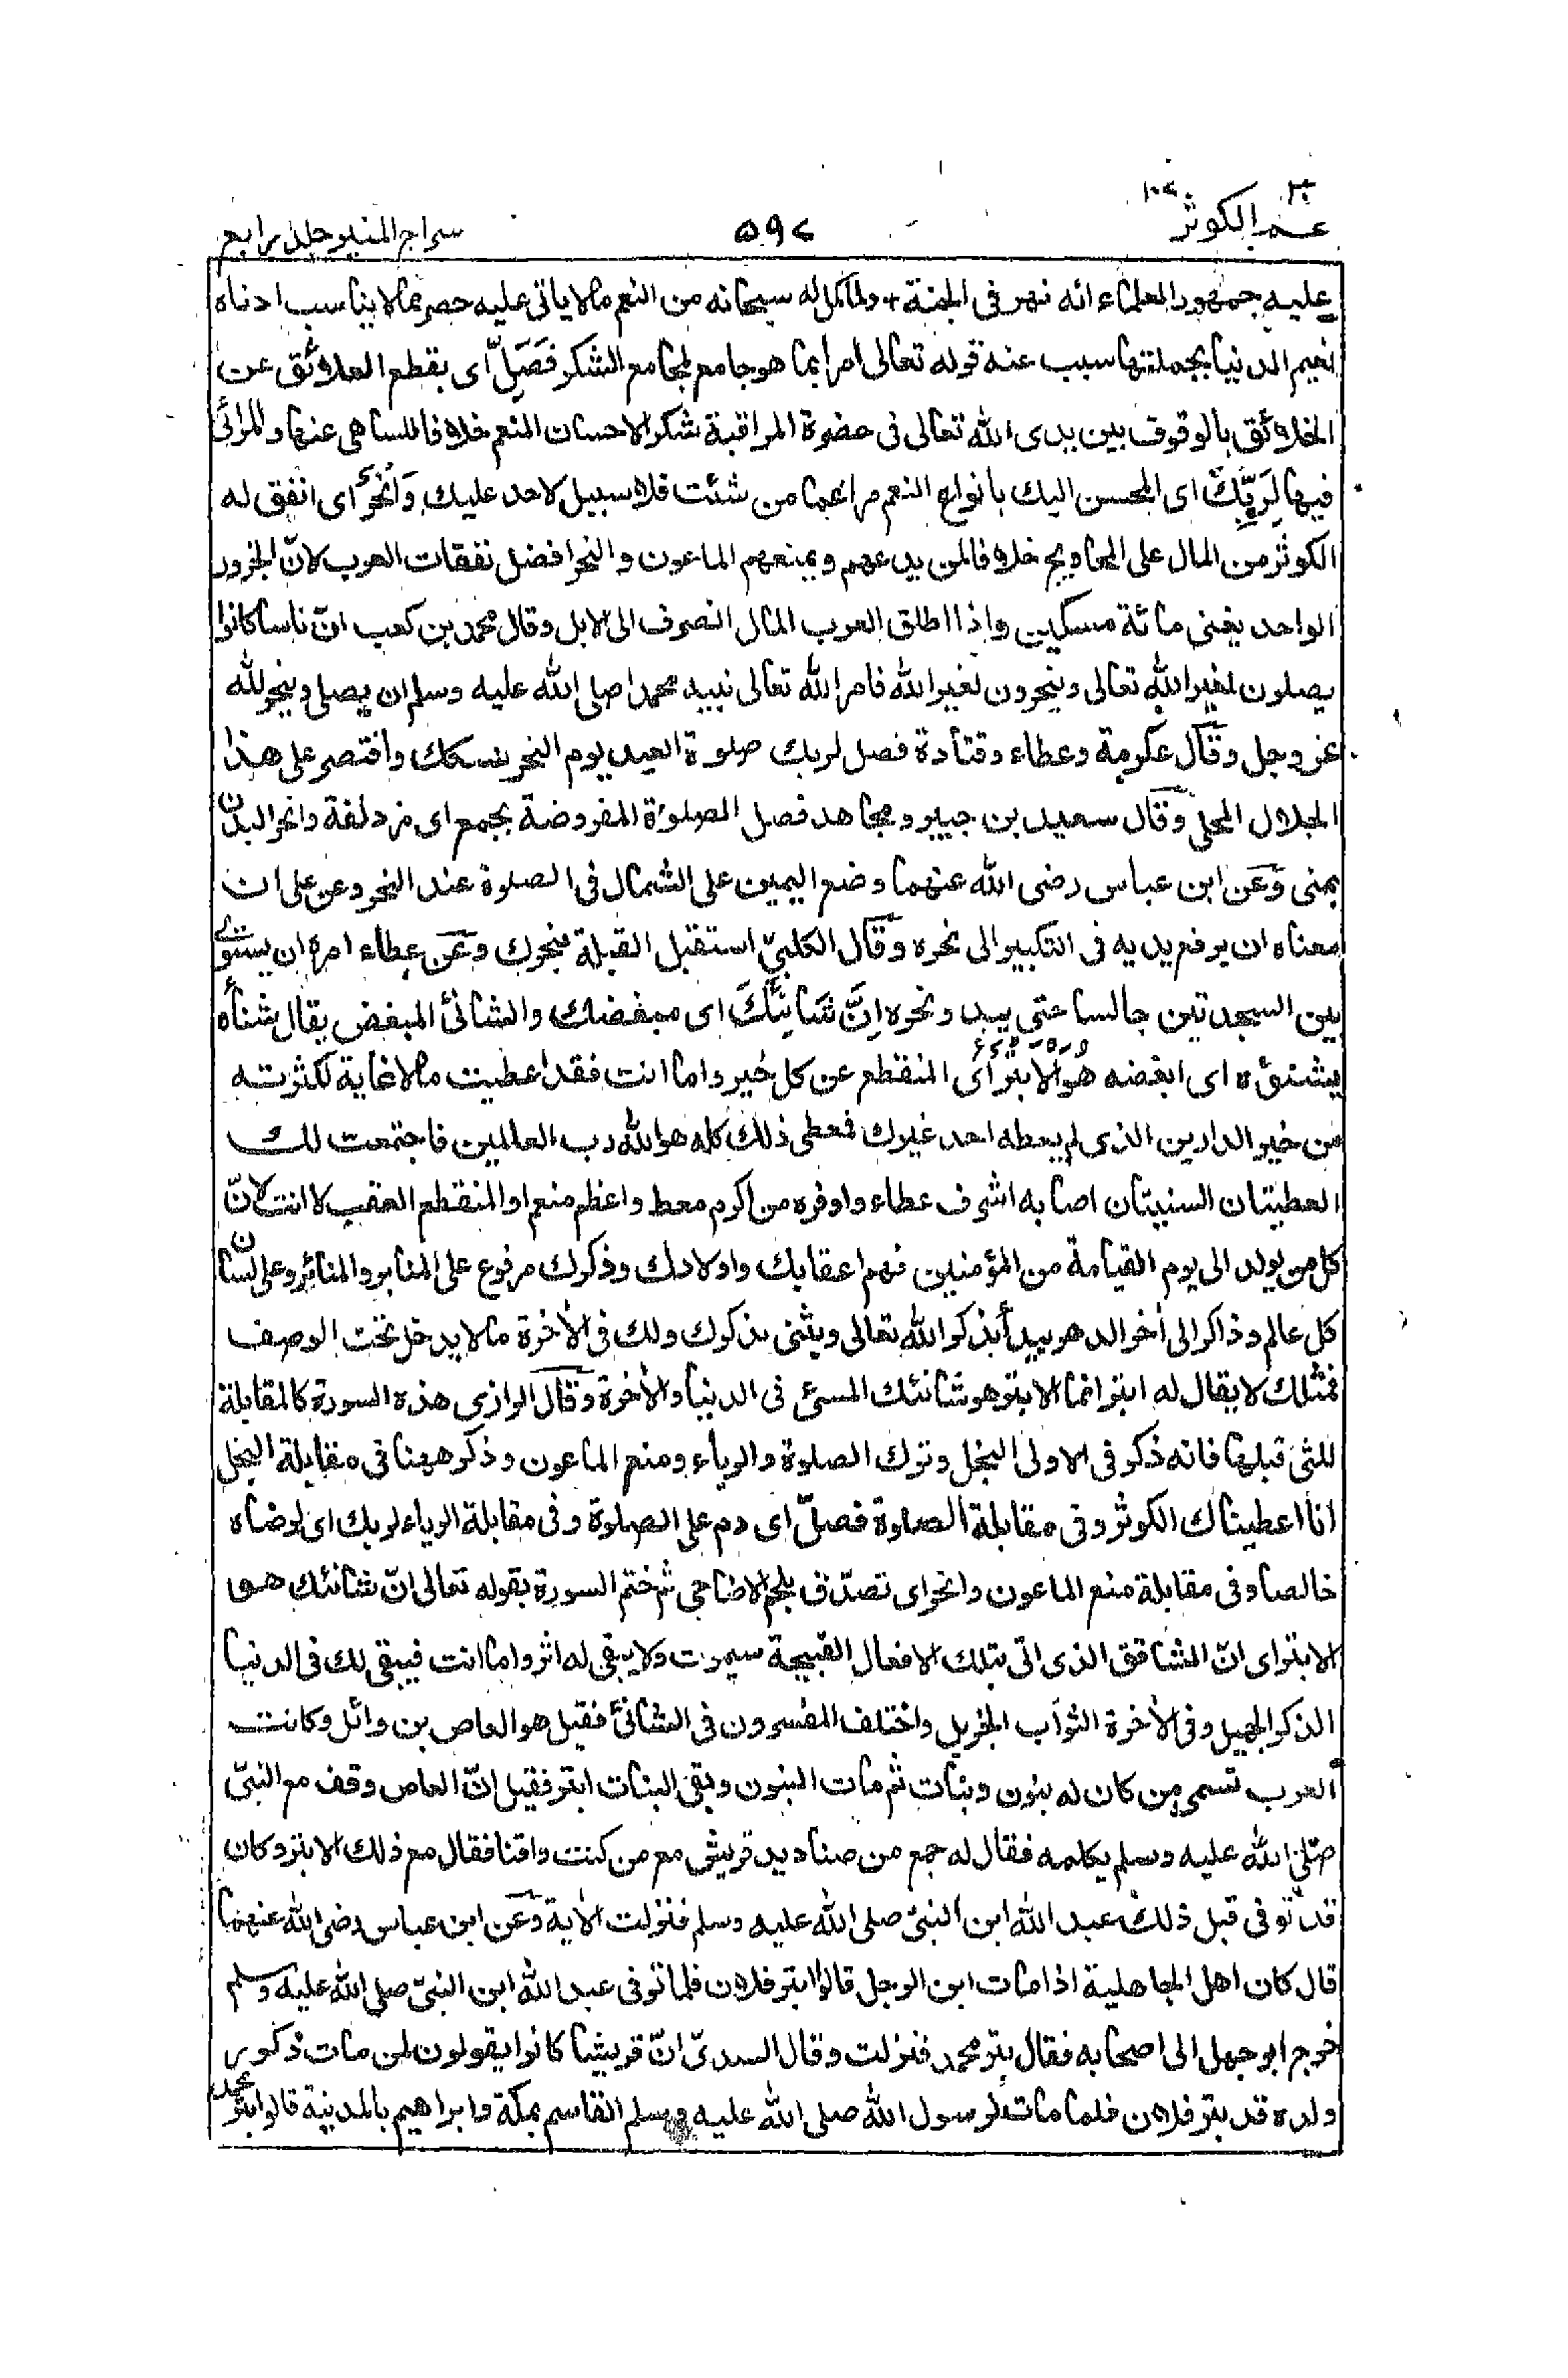 عم الكوثر ٥٩٧ سراج المنير جلد رابع
عليه جمهور العلماء انه نهر فى الجنة ولما كمل له سبحانه من النعم ما لا ياتى عليه حصر مما لا يناسب ادناه
نعيم الدنيا بجملتها سبب عنه قوله تعالى امرا بما هو جامع لمجامع الشكر فَصَلِّ اى بقطع العلائق عن
الخلائق بالوقوف بين يدى الله تعالى فى حضرة المراقبة شكرا لاحسان المنعم خلافا للساهى عنها والمرائى
فيها لِرَبِّكَ اى المحسن اليك بانواع النعم مراغما من شئت فلا سبيل لاحد عليك وَانْحَرْ اى انفق له
الكوثر من المال على المحاويج خلافا لمن يدعهم ويمنعهم الماعون والنحر افضل نفقات العرب لانّ الجزور
الواحد يغنى مائة مسكين واذا اطلق العرب المال انصرف الى الابل وقال محمد بن كعب انّ ناسا كانوا
يصلون لغير الله تعالى وينحرون لغير الله فامر الله تعالى نبيه محمدا صلى الله عليه وسلم ان يصلى وينحر لله
عز وجل وقال عكرمة وعطاء وقتادة فصل لربك صلوة العيد يوم النحر نسكك واقتصر على هذا
الجلال المحلى وقال سعيد بن جبير ومجاهد فصل الصلوة المفروضة بجمع اى مزدلفة وانحر البدن
بمنى وعن ابن عباس رضى الله عنهما وضع اليمين على الشمال فى الصلوة عند النحر وعن على ان
معناه ان يرفع يديه فى التكبير الى نحره وقال الكلبىّ استقبل القبلة بنحرك وعن عطاء امره ان يستوى
بين السجدتين جالسا حتى يبد ونحره اِنَّ شَانِئَكَ اى مبغضك والشانئ المبغض يقال شناه
يشنئوه اى ابغضه هو الابتر اى المنقطع عن كل خير واما انت فقد اعطيت ما لا غاية لكثرته
من خير الدارين الذى لم يعطه احد غيرك فمعطى ذلك كله هو الله رب العالمين فاجتمعت لك
العطيتان السنيتان اصابه اشرف عطاء واوفره من اكرم معط واعظم منعم او المنقطع العقب لا انت لانّ
كل من يولد الى يوم القيامة من المؤمنين فهم اعقابك واولادك وذكرك مرفوع على المنابر والمنائر وعلى لسان
كل عالم وذاكر الى اٰخر الدهر يبدأ بذكر الله تعالى ويثنى بذكرك ولك فى الاٰخرة ما لا يدخل تحت الوصف
فمثلك لا يقال له ابتر انما الابتر هو شانئك المسئ فى الدنيا والاٰخرة وقال الرازى هذه السورة كالمقابلة
للتى قبلها فانه ذكر فى الاولى البخل وترك الصلوة والرياء ومنع الماعون وذكر ههنا فى مقابلة البخل
انا اعطيناك الكوثر وفى مقابلة الصلوة فصلّ اى دم على الصلوة وفى مقابلة الرياء لربك اى لرضاه
خالصا وفى مقابلة منع الماعون وانحر اى تصدّق بلحم الاضاحى ثم ختم السورة بقوله تعالى انّ شانئك هو
الابتر اى انّ المشاقق الذى اتى بتلك الافعال القبيحة سيموت ولا يبقى له اثر واما انت فيبقى لك فى الدنيا
الذكر الجميل وفى الاٰخرة الثواب الجزيل واختلف المفسرون فى الشانئ فقيل هو العاص بن وائل وكانت
العرب تسمى من كان له بنون وبنات ثم مات البنون وبقى البنات ابتر فقيل انّ العاص وقف مع النبىّ
صلى الله عليه وسلم يكلمه فقال له جمع من صناديد قريش مع من كنت واقفا فقال مع ذلك الابتر وكان
قد توفى قبل ذلك عبد الله ابن النبىّ صلى الله عليه وسلم فنزلت الاٰية وعن ابن عباس رضى الله عنهما
قال كان اهل الجاهلية اذا مات ابن الرجل قالوا ابتر فلان فلما توفى عبد الله ابن النبىّ صلى الله عليه وسلم
خرج ابو جهل الى اصحابه فقال بتر محمد فنزلت وقال السدىّ انّ قريشا كانوا يقولون لمن مات ذكور
ولده قد بتر فلان فلما مات لرسول الله صلى الله عليه وسلم القاسم بمكة وابراهيم بالمدينة قالوا بتر محمد